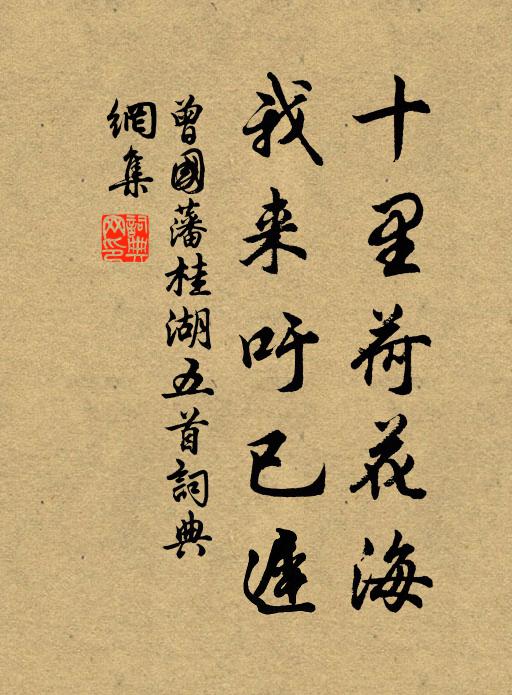 十里荷花海
我来吁已遲
曾國藩桂湖五首詞典
網集
詞典
网印